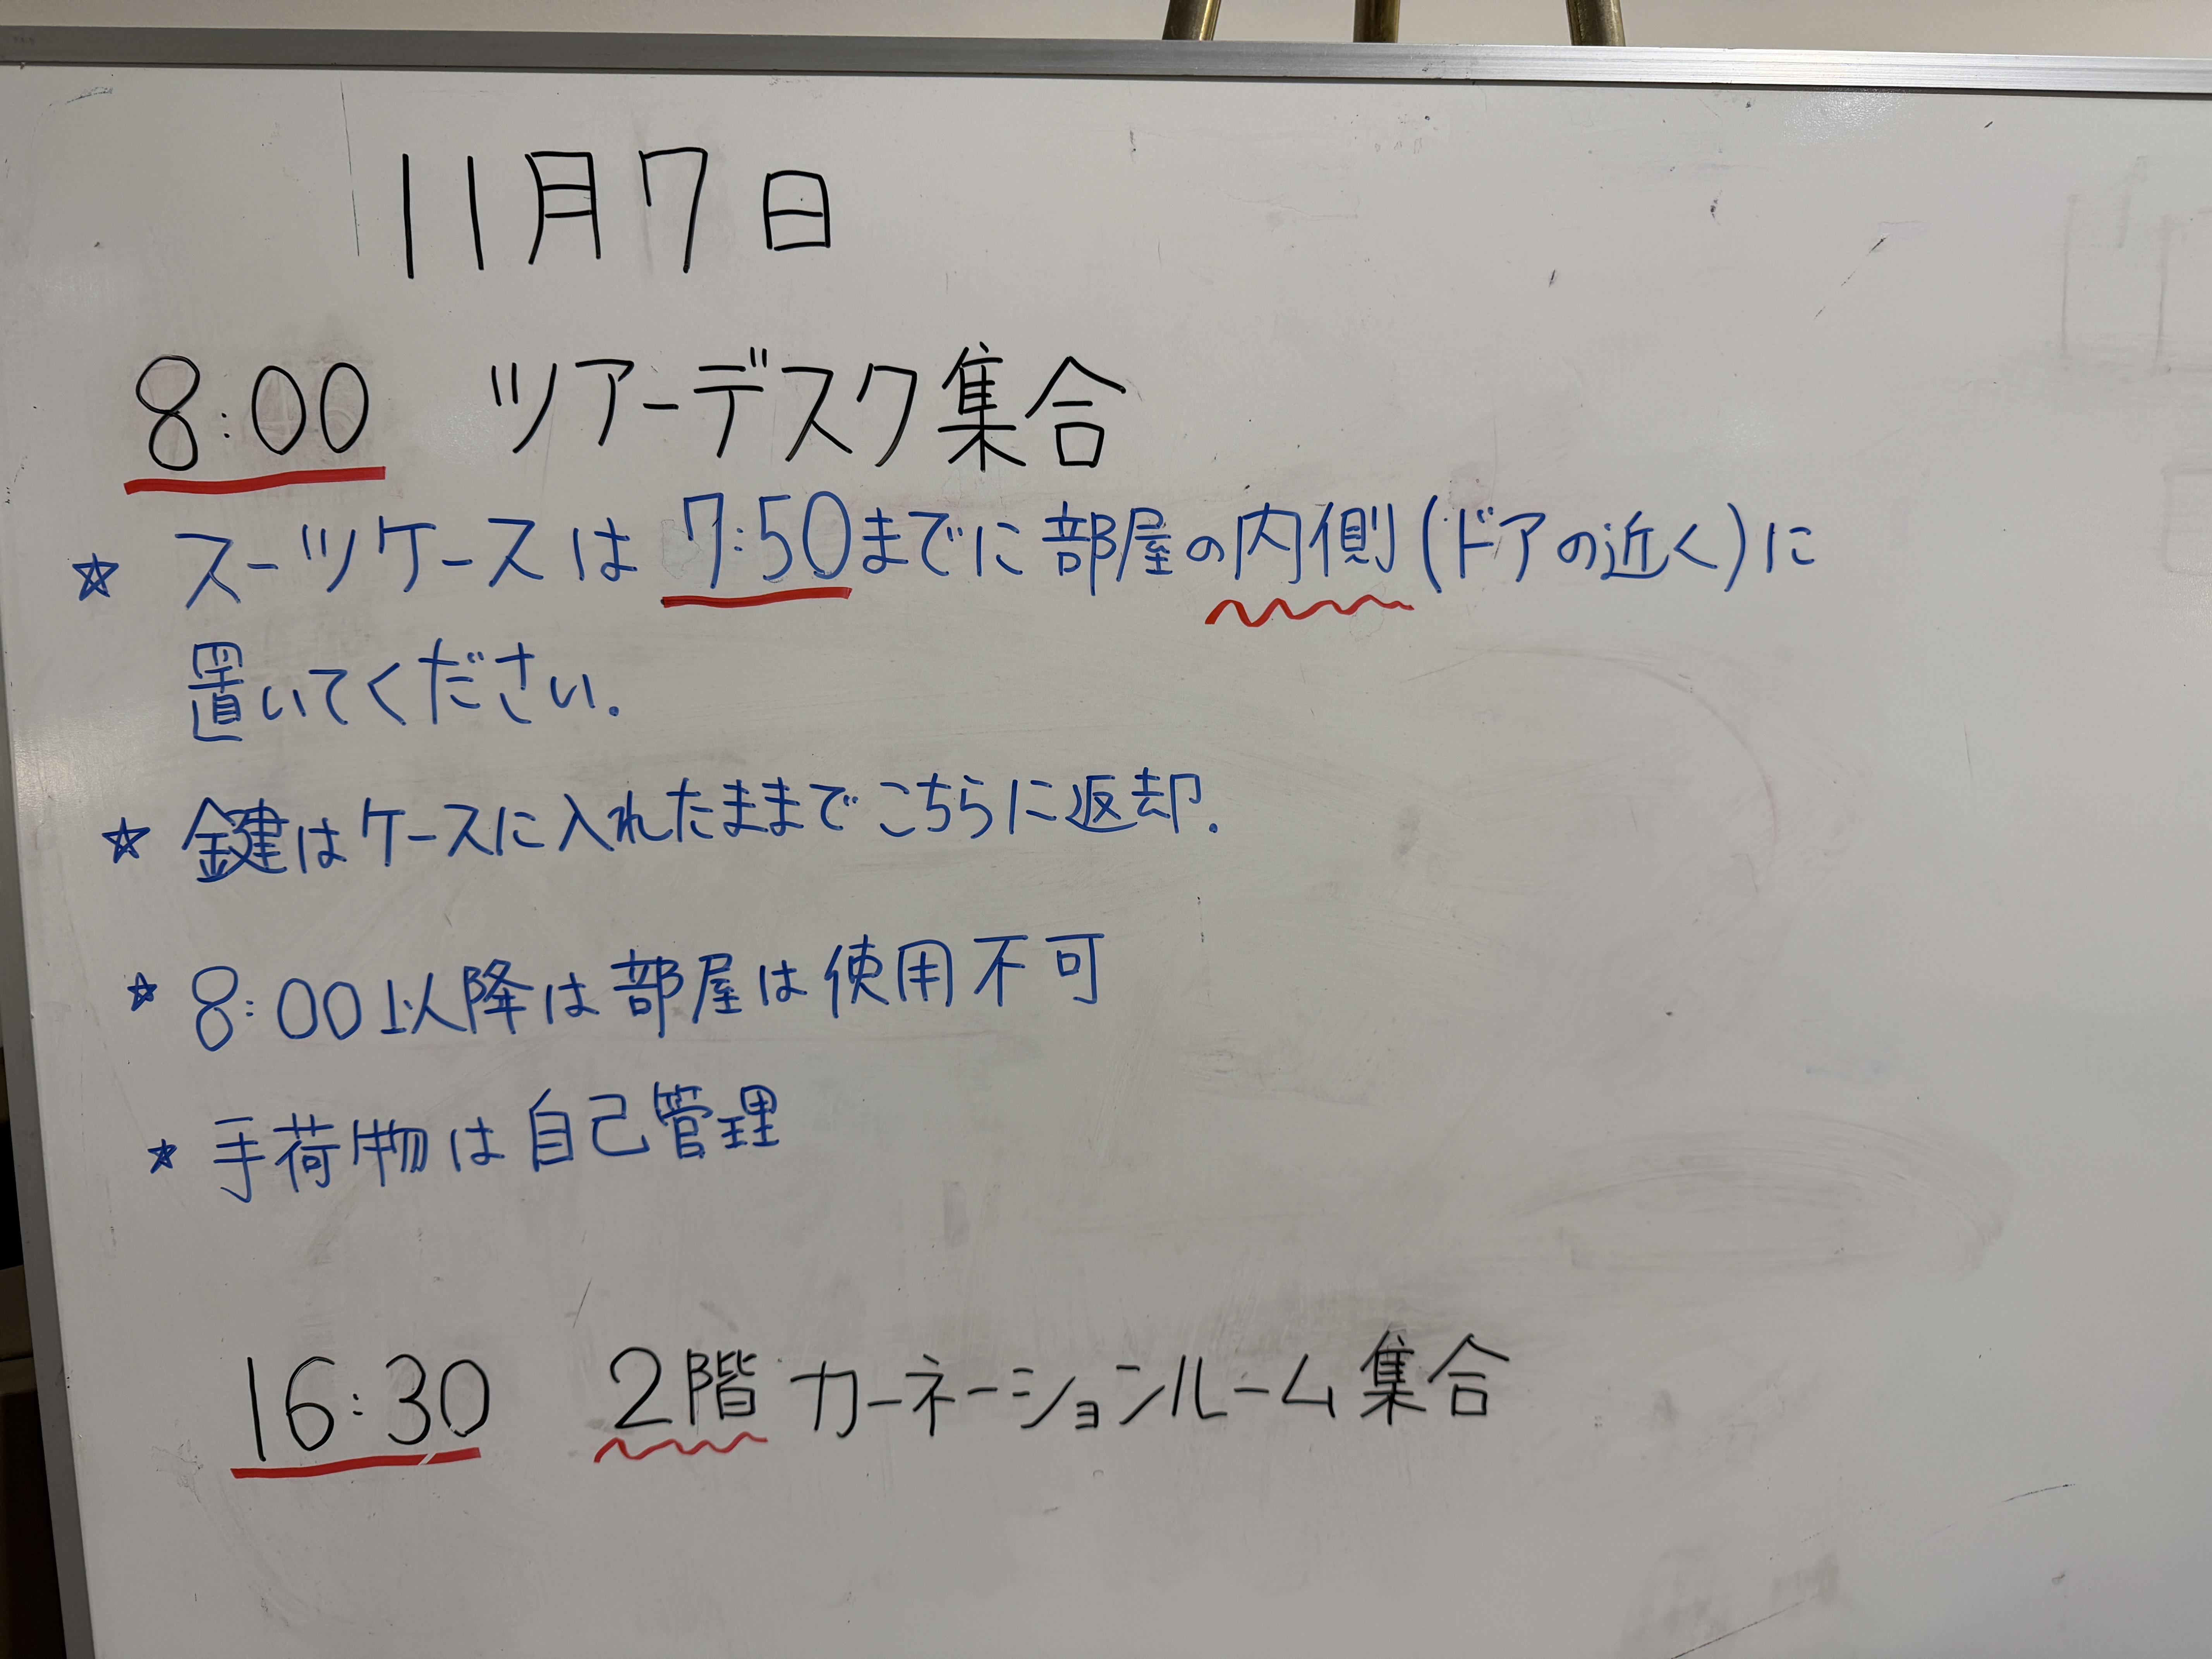 11月7日
8:00 ツアーデスク集合
☆ スーツケースは 7:50までに部屋の内側(ドアの近く)に
置いてください.
☆ 鍵はケースに入れたままでこちらに返却.
☆ 8:00以降は部屋は使用不可
☆ 手荷物は自己管理
16:30 2階 カーネーションルーム集合